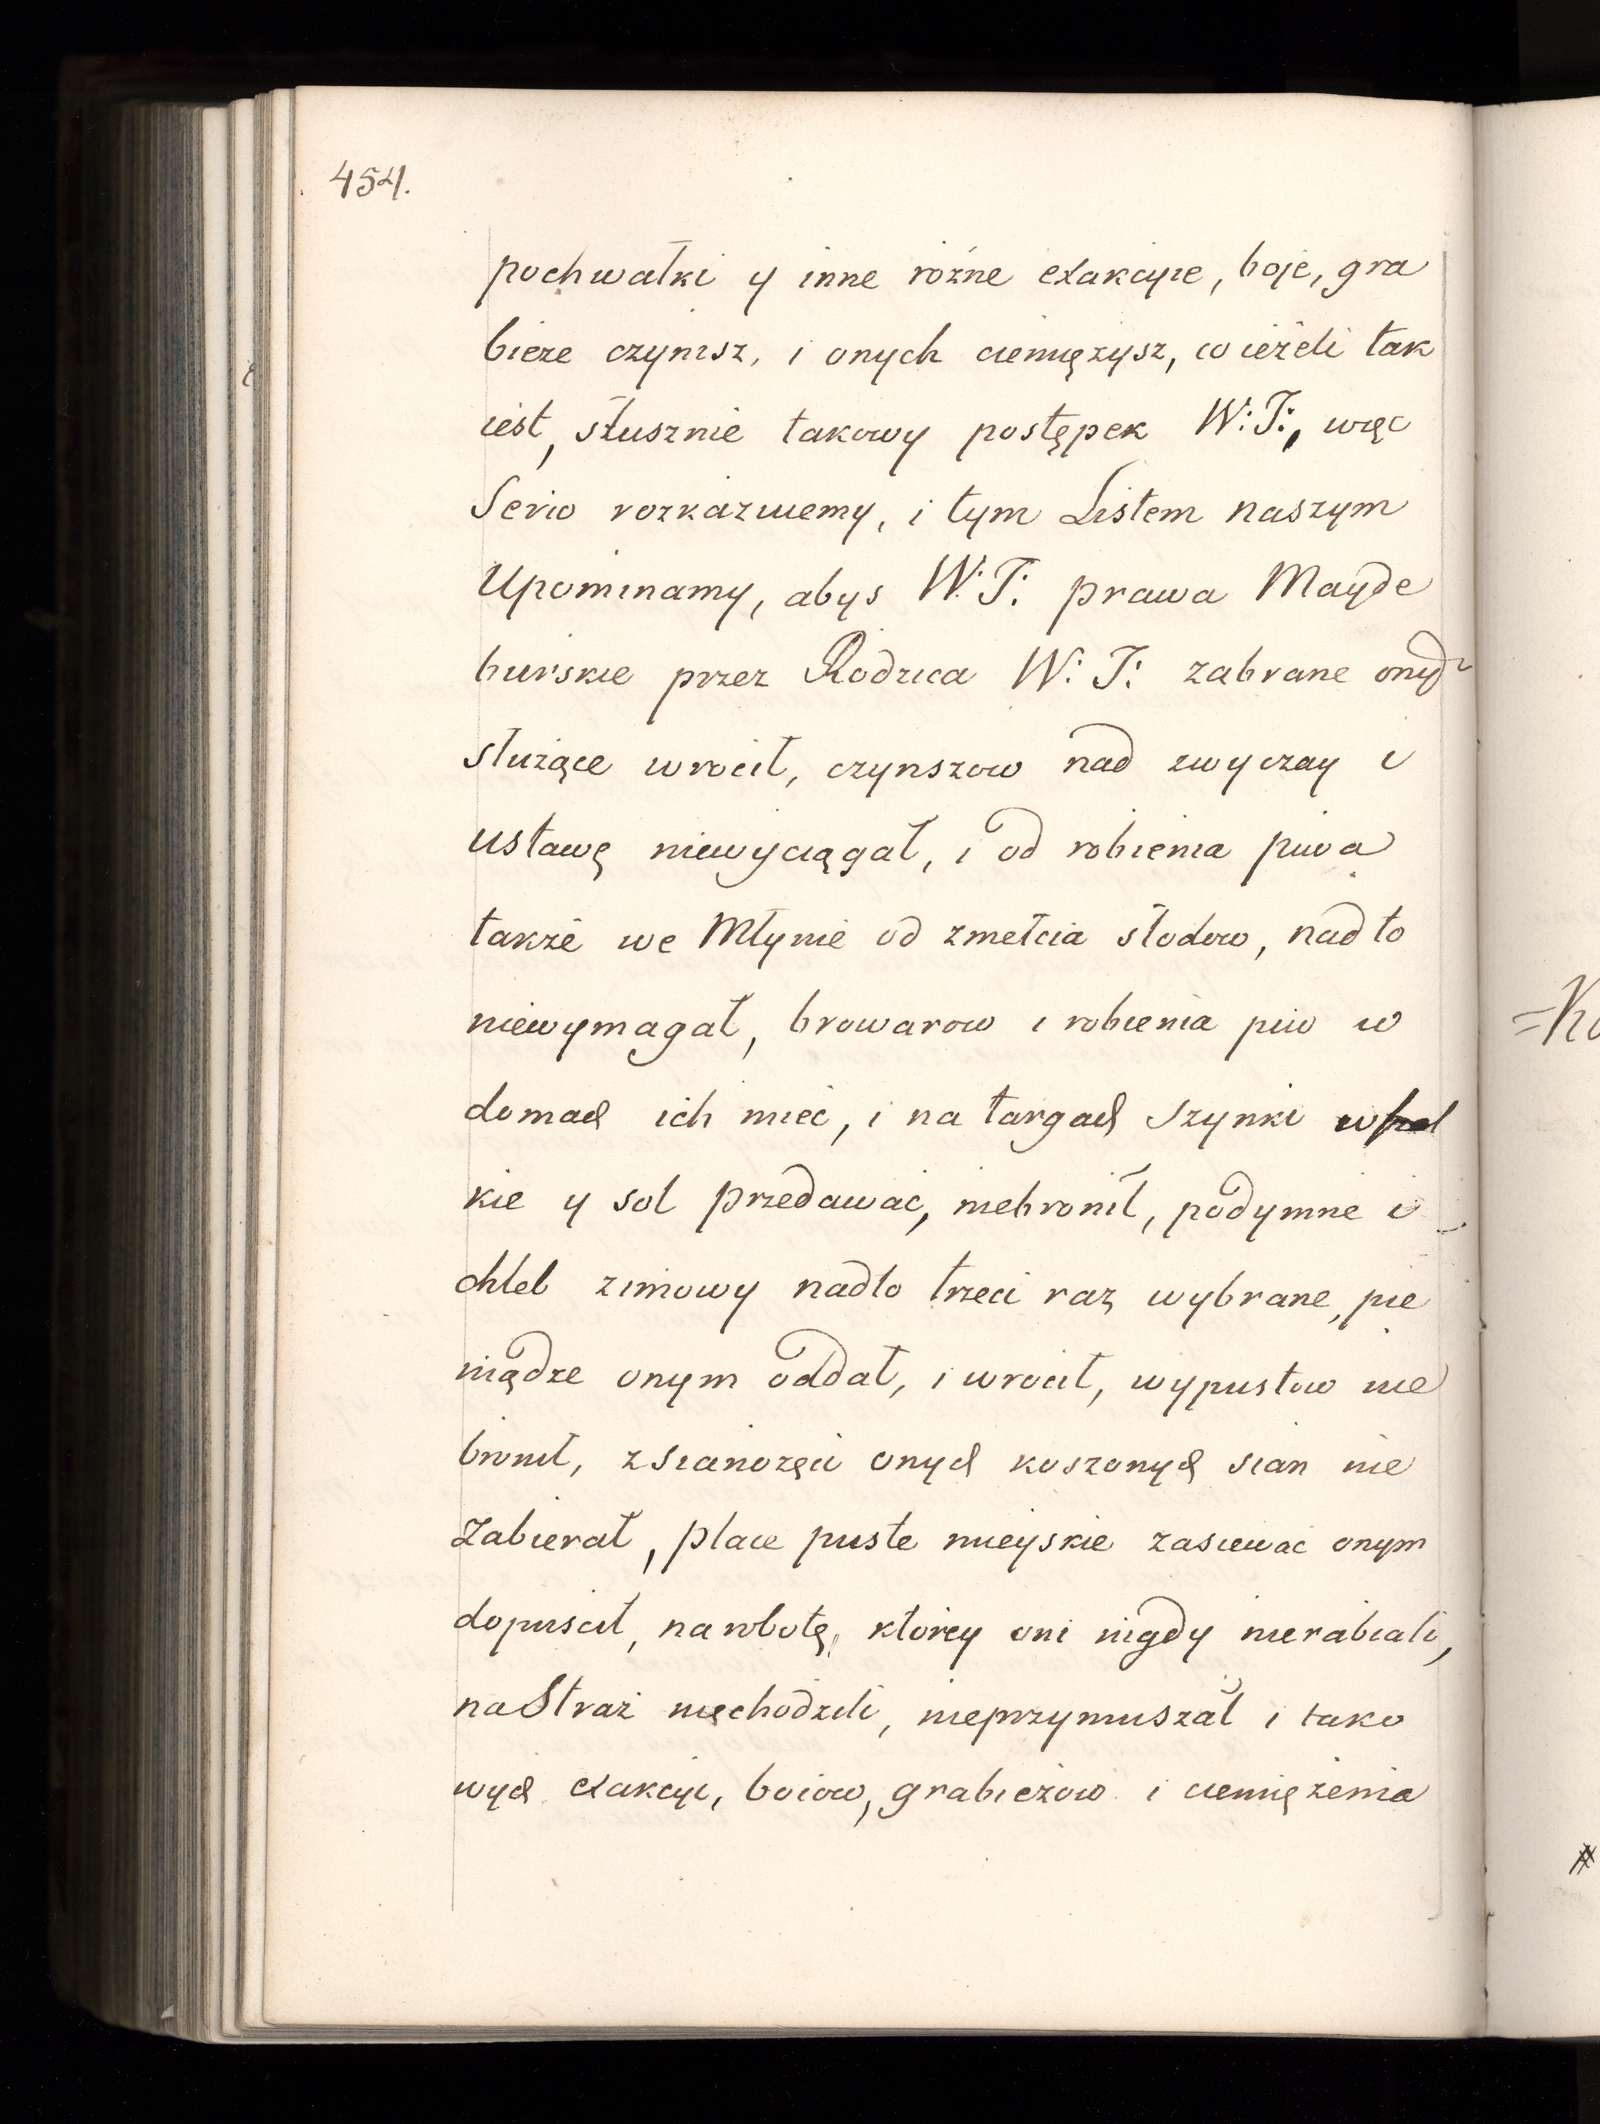 454.
pochwałki y inne rożne exakcyie, boje, gra
bieze czynisz, i onych ciemięzysz, co ieżeli tak
iest, słusznie takowy postępek W: T:, więc
Serio rozkazuiemy, i tym Listem naszym
Upominamy, abys W: T: prawa Mayde
burskie przez Rodzica W: T: zabrane onych
służące wrocił, czynszow nad zwyczay i
ustawę niewyciągał, i od robienia piwa
takze we Młynie od zmełcia słodow, nad to
niewymagał, browarow i robienia piw w
domach ich mieć, i na targach szynki
kie y sol przedawać, niebronił, podymne i
chleb zimowy nadto trzeci raz wybrane, pie
niądze onym oddał, i wrocił, wypustow nie
bronił, z sianozęci onych koszonych sian nie
Zabierał, place puste mieyskie zasiewac onym
dopuscił, na robotę, ktorey oni nigdy nierabiali,
na Straż niechodzili, nieprzymuszał i tako
wych exakcyi, boiow, grabieżow i ciemiężenia